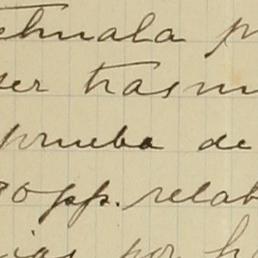 etmala p
ser trasm
prueba de
30 pp. relat
ias por h